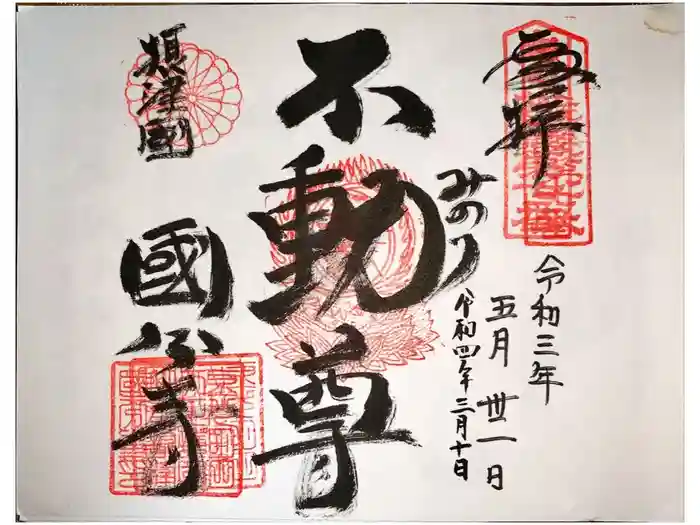 奉拝
令和三年
五月 丗一日
みのり
令和四年三月十日
不動尊
摂津國
國分寺